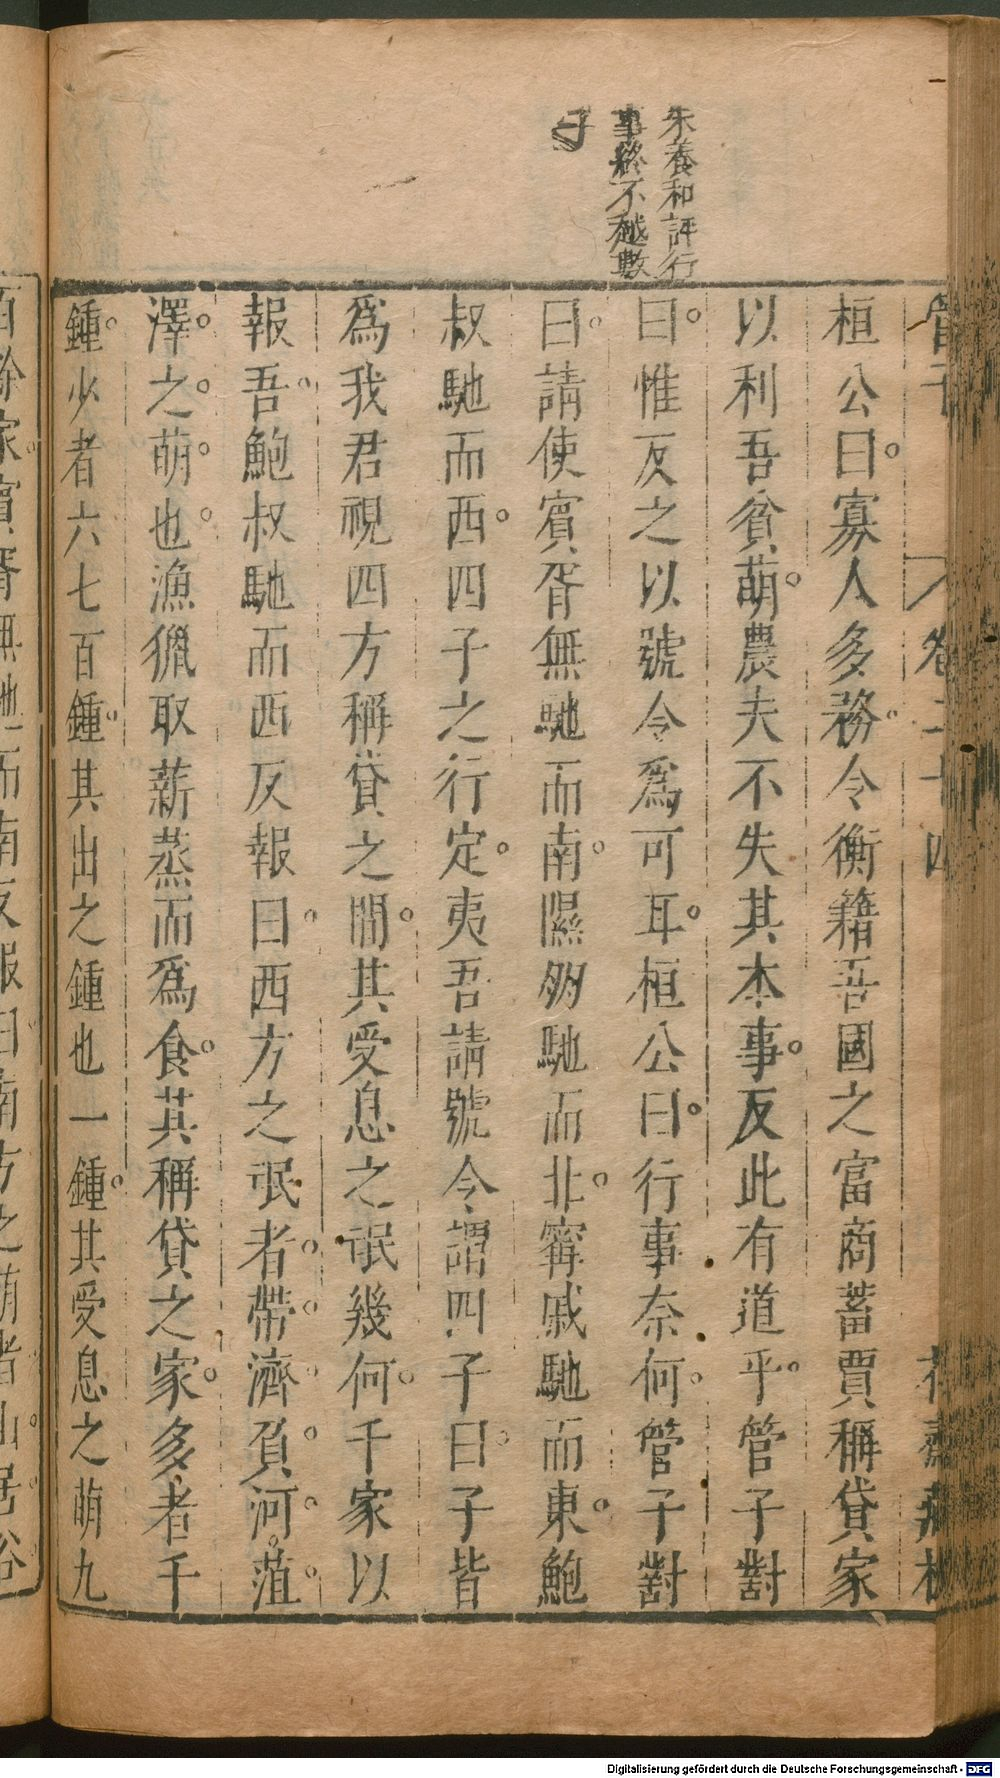 朱養和評行
事終不越數
子
管子
卷二十四
花齋藏板
桓公曰寡人多務令衡籍吾國之富商蓄賈稱貸家
以利吾貧萌農夫不失其本事反此有道乎管子對
曰惟反之以號令爲可耳桓公曰行事奈何管子對
曰請使賓胥無馳而南隰朋馳而北寗戚馳而東鮑
叔馳而西四子之行定夷吾請號令謂四子曰子皆
爲我君視四方稱貸之間其受息之氓幾何千家以
報吾鮑叔馳而西反報曰西方之氓者帶濟負河菹
澤之萌也漁獵取薪蒸而爲食其稱貸之家多者千
鍾少者六七百鍾其出之鍾也一鍾其受息之萌九
百餘家賓胥無馳而南反報曰南方之萌者山居谷
Digitalisierung gefördert durch die Deutsche Forschungsgemeinschaft - DFG